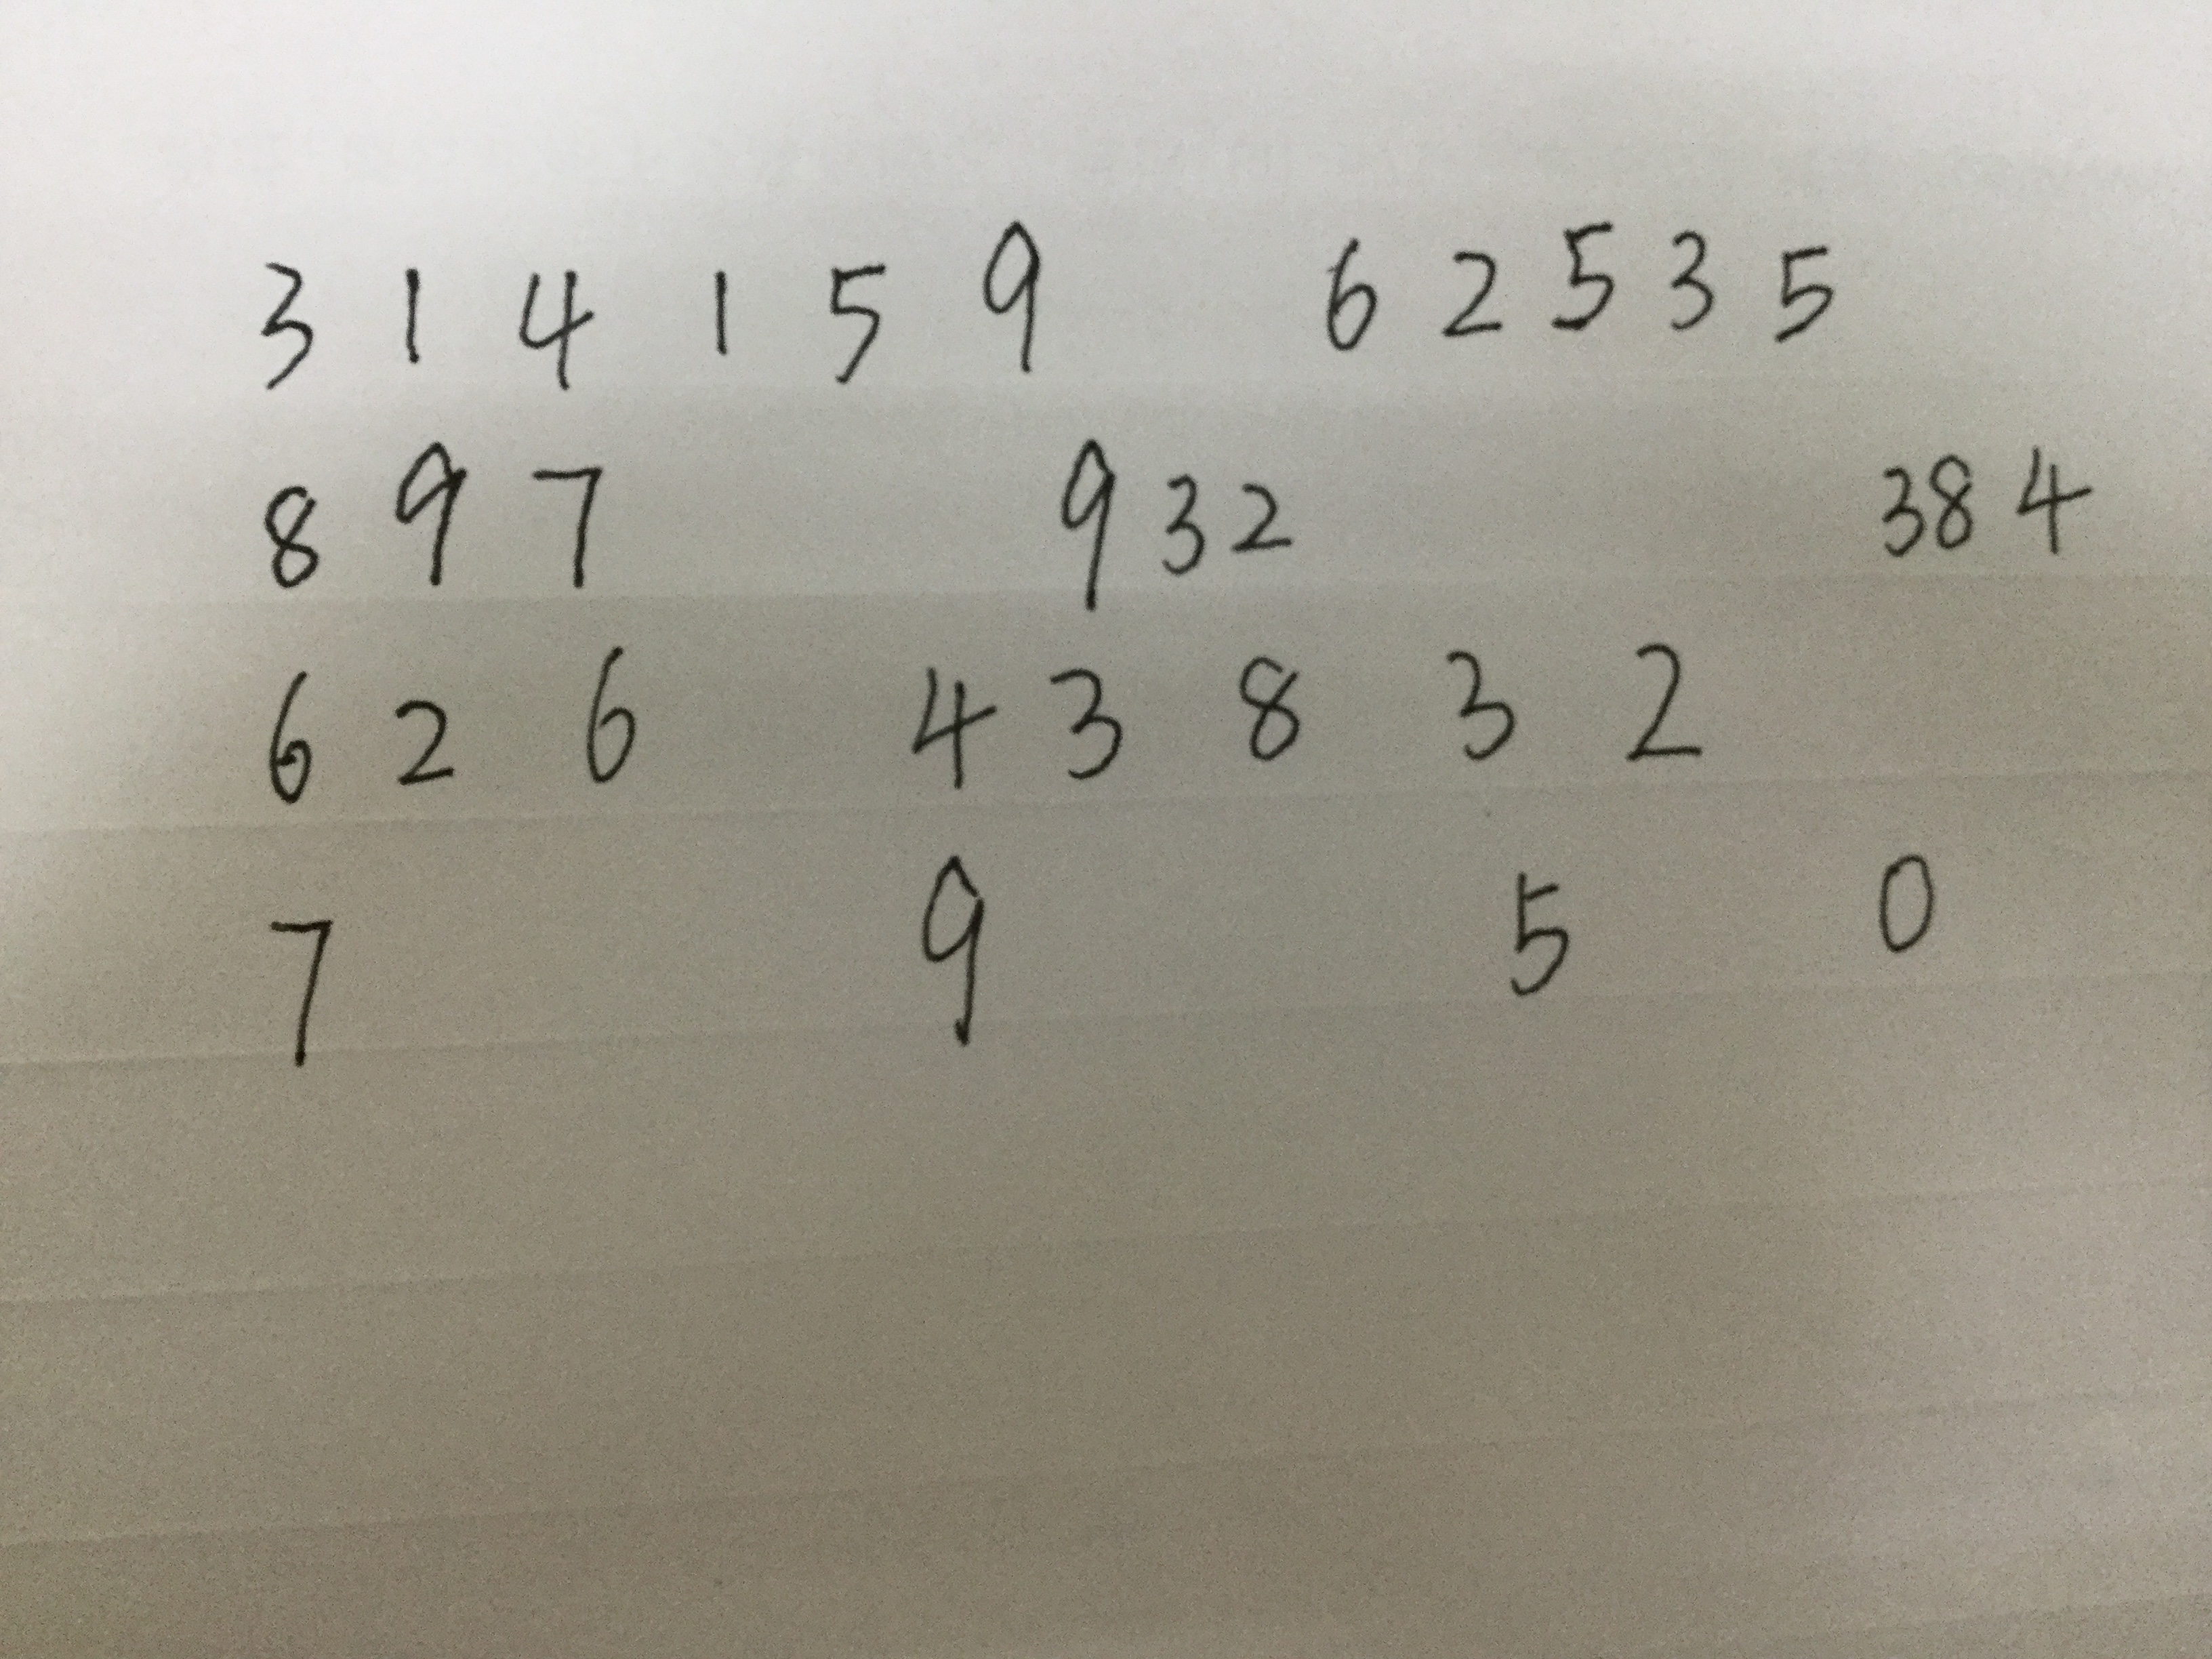 3 1 4 1 5 9 6 2 5 3 5
8 9 7 9 3 2 3 8 4
6 2 6 4 3 8 3 2
7 9 5 0